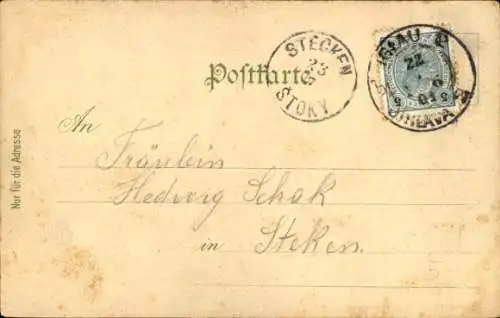 STECKEN
23
STOKY
IGLAU
22
6
01
JIHLAVA
Postkarte
Nur für die Adresse
An
Fräulein
Hedwig Schak
in Steken.